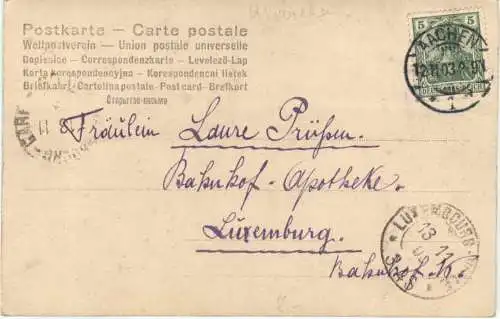 Postkarte – Carte postale
Weltpostverein – Union postale universelle
Dopisnice – Correspondenzkarte – Levelező-Lap
Korta korespondencyjna – Korespondenční lístek
Briefkaart – Cartolina postale – Post card – Brefkort
Открытое письмо
5 5
AACHEN
12.11.03.
1
Fräulein Laure Prüßen
Bahnhof-Apotheke.
Luxemburg.
Bahnhof
LUXEMBOURG
13 11